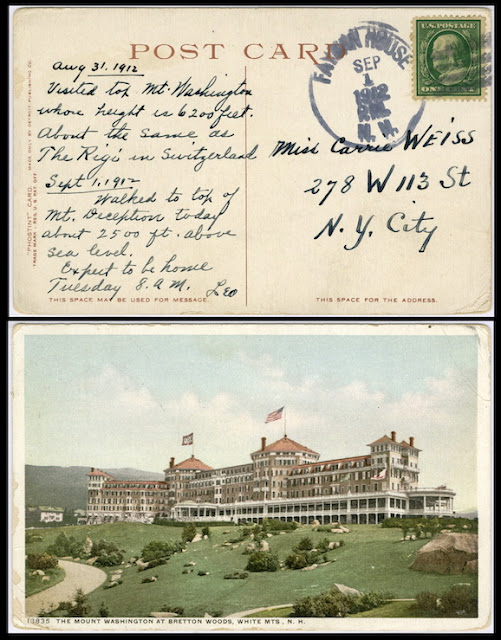 POST CARD
Aug 31. 1912
Visited top Mt. Washington
whose height is 6200 feet.
About the same as
The Rigi in Switzerland
Sept 1. 1912
Walked to top of
Mt. Deception today
about 2500 ft. above
sea level.
Expect to be home
Tuesday 8 A.M. Leo
THIS SPACE MAY BE USED FOR MESSAGE.
"PHOSTINT" CARD.
MADE ONLY BY DETROIT PUBLISHING CO.
TRADE MARK - REG. U.S. PAT. OFF.
FABYAN HOUSE
SEP
1
1912
N. H.
U.S. POSTAGE
ONE CENT
Miss Carrie WEISS
278 W 113 St
N. Y. City
THIS SPACE FOR THE ADDRESS.
13835 THE MOUNT WASHINGTON AT BRETTON WOODS, WHITE MTS., N. H.